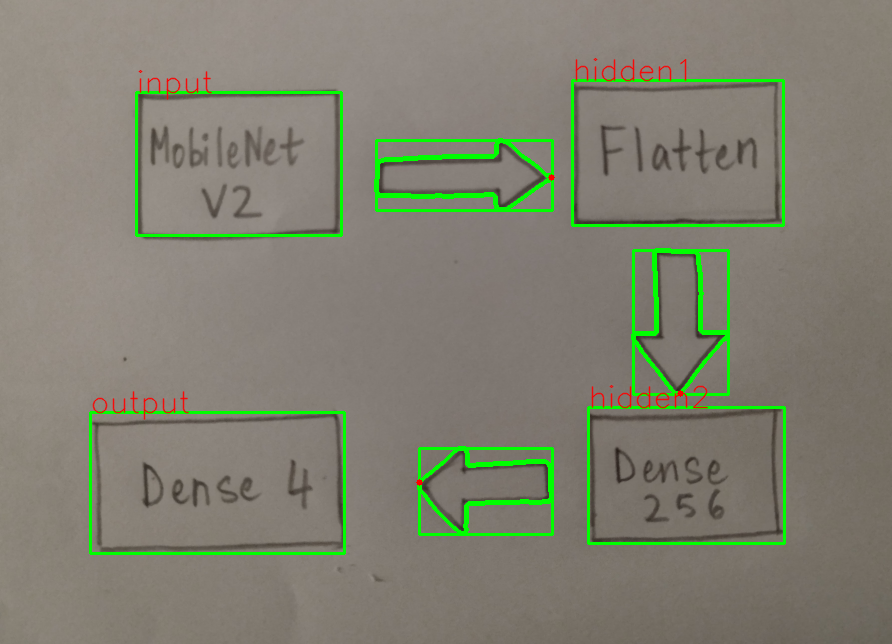 input
MobileNet
V2
hidden1
Flatten
hidden2
Dense
256
output
Dense 4